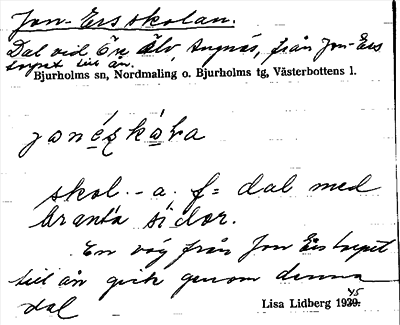 Jon-Ersskolan.
Dal vid Öre älv, Angnäs, från Jon-Ers
torpet till ån.
Bjurholms sn, Nordmaling o. Bjurholms tg, Västerbottens l.
skol. - a. f = dal med
branta sidor.
En väg från Jon Erstorpet
till ån gick genom denna
dal
Lisa Lidberg 1939. 45